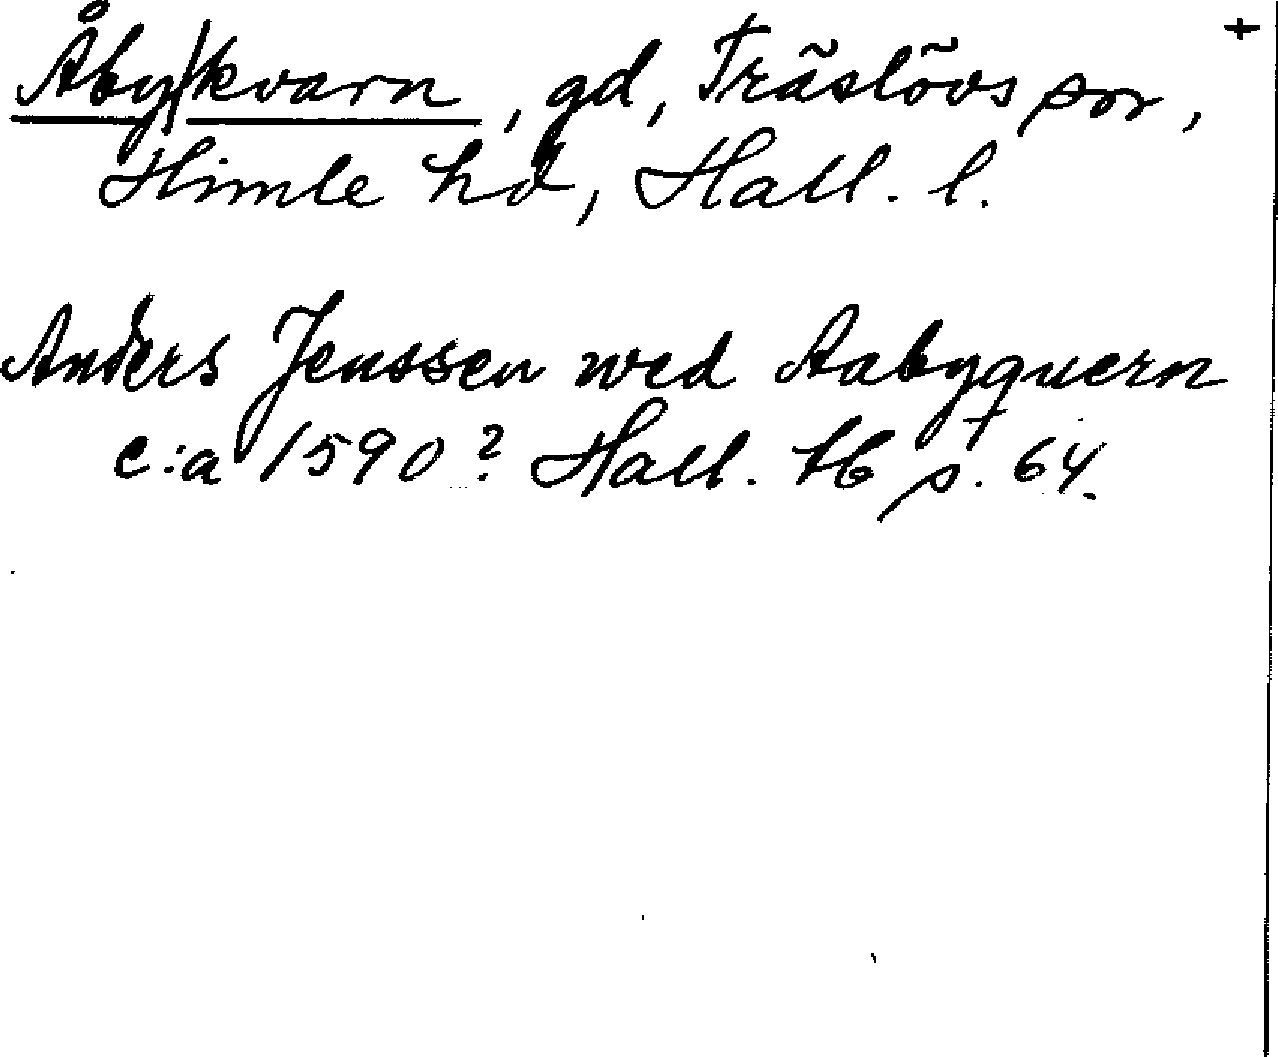 Åby/kvarn, gd, Träslövs sn, +
Himle hd, Hall. l.
Anders Jenssen wed Aabyquern
c:a 1590? Hall. tb s. 64.